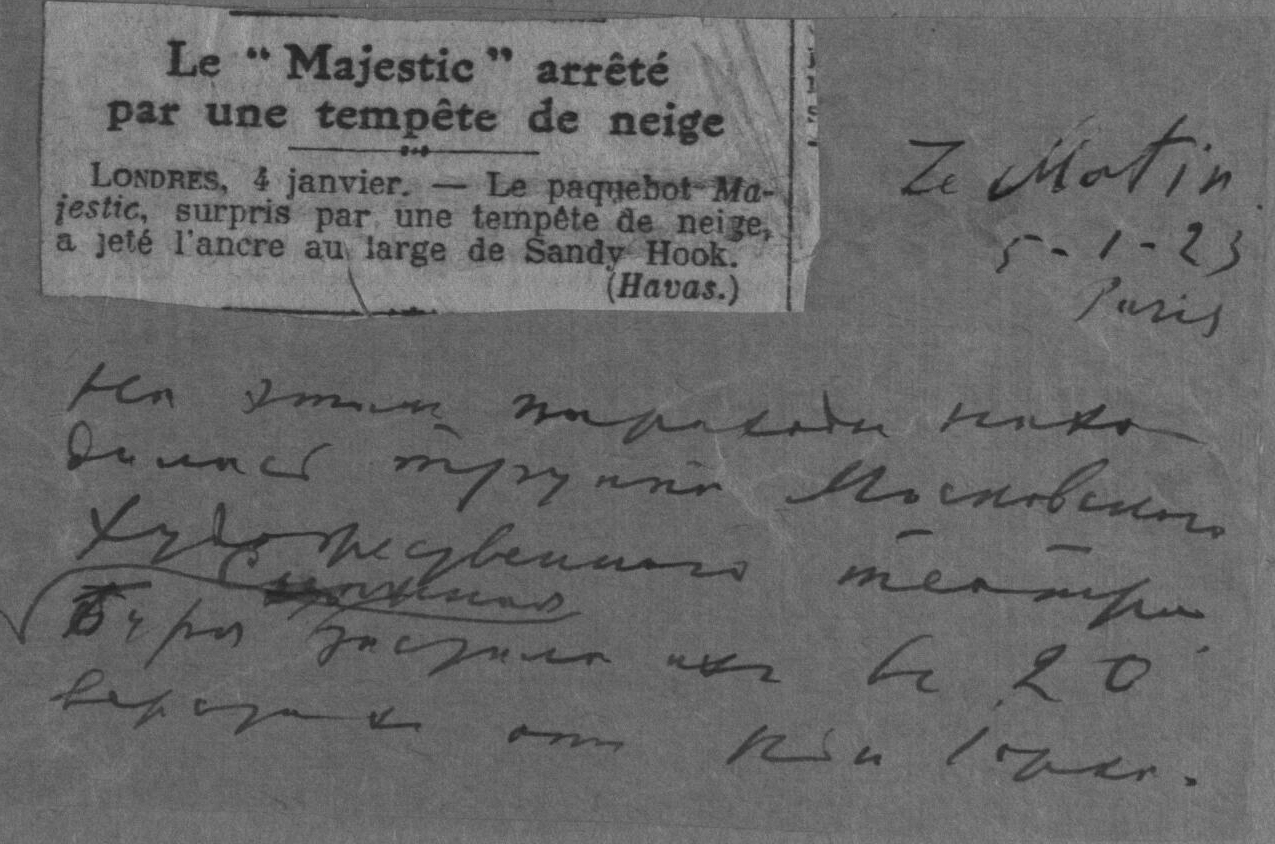 Le “Majestic” arrêté
par une tempête de neige
LONDRES, 4 janvier. — Le paquebot Ma-
jestic, surpris par une tempête de neige,
a jeté l'ancre au large de Sandy Hook.
(Havas.)
Le Matin
5-1-23
Paris
На этом пароходе нахо
дилась труппа Московского
Художественного театра
Буря застала их въ 20
верстахъ от Нью Iорка.